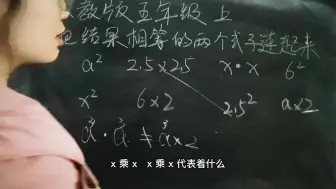 教版五年级上
把结果相等的两个式子连起来
a² 2.5×2.5 x·x 6²
x² 6×2 2.5² a×2
a·a ≠ a×2
x 乘 x x 乘 x 代表着什么